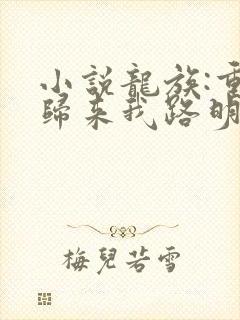 小說龍族:重
歸來我路明
梅兒若雪